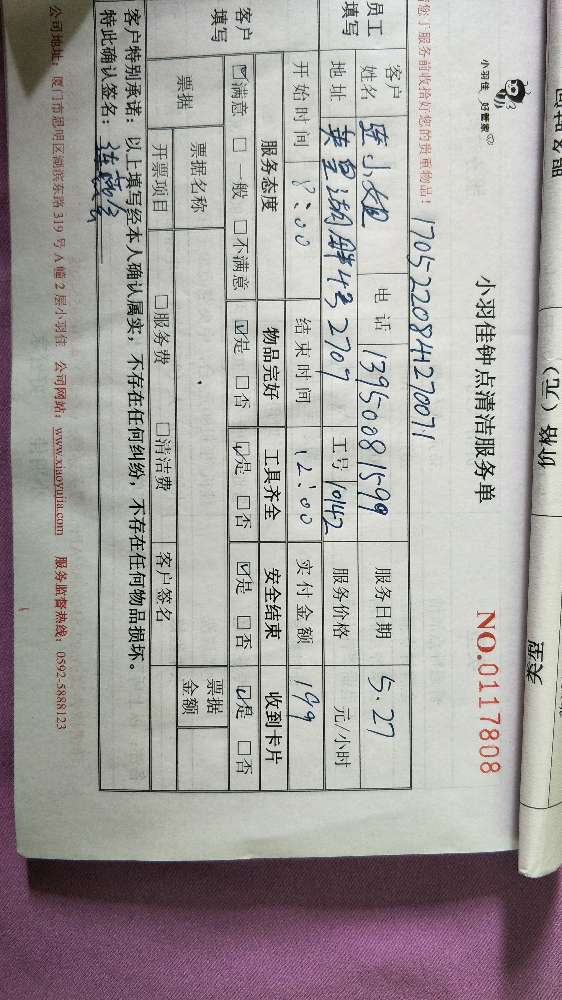 小羽佳 好管家
小羽佳钟点清洁服务单
NO.0117808
170522084270071
您了服务前收拾好您的贵重物品!
员工填写
客户姓名 连小姐 电话 13950081599 服务日期 5.27
地址 英皇湖畔4号2707 工号 10142 服务价格 元/小时
开始时间 8:00 结束时间 12:00 实付金额 199
客户填写
服务态度 物品完好 工具齐全 安全结束 收到卡片
☑满意 □一般 □不满意 ☑是 □否 ☑是 □否 ☑是 □否 ☑是 □否
票据 票据名称 票据金额
开票项目 □服务费 □清洁费 客户签名
客户特别承诺:以上填写经本人确认属实,不存在任何纠纷,不存在任何物品损坏。
特此确认签名:
公司地址:厦门市思明区湖滨东路319号A幢2层小羽佳 公司网站:www.xiaoyujia.com 服务监督热线:0592-5888123